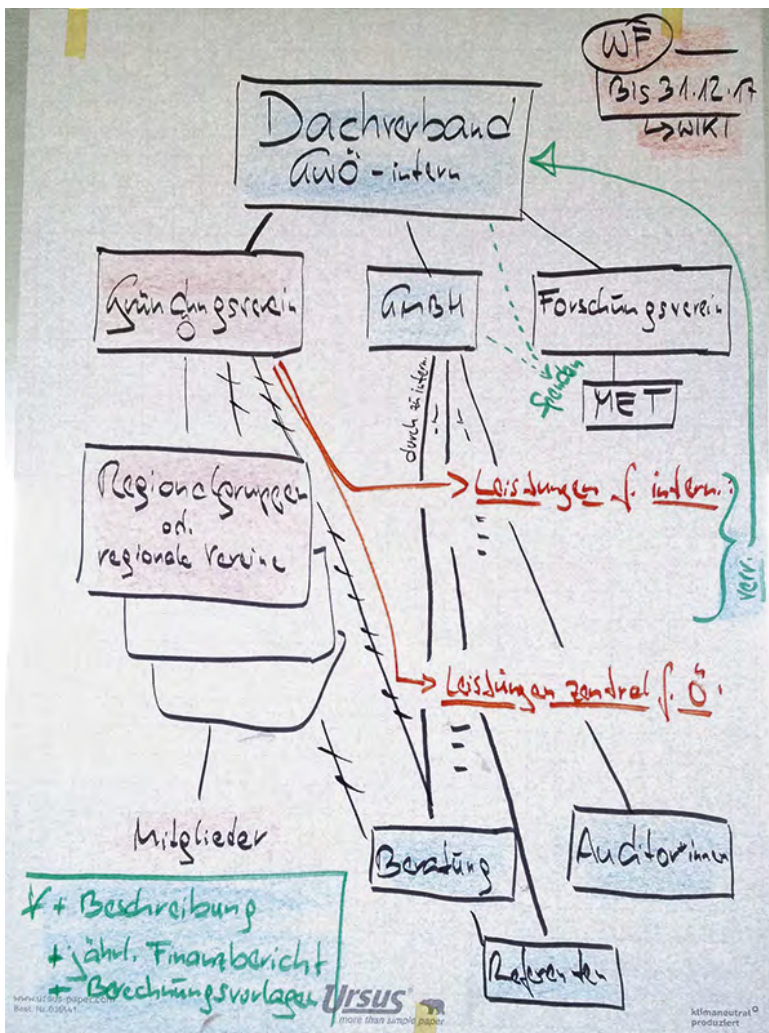 WF
Bis 31.12.17
↳ WIKI
Dachverband
GWÖ - intern
Gründungsverein
Ö
GMBH
Forschungsverein
MET
Spenden
durch zu intern.
Regionalgruppen
od.
regionale Vereine
Leistungen f. intern.:
verr.
Leistungen zentral f. Ö.
Mitglieder
Beratung
Auditor*innen
Referenten
+ Beschreibung
+ jährl. Finanzbericht
+ Berechnungsvorlagen
www.ursus-paper.com
Ursus®
more than simple paper
klimaneutral
produziert